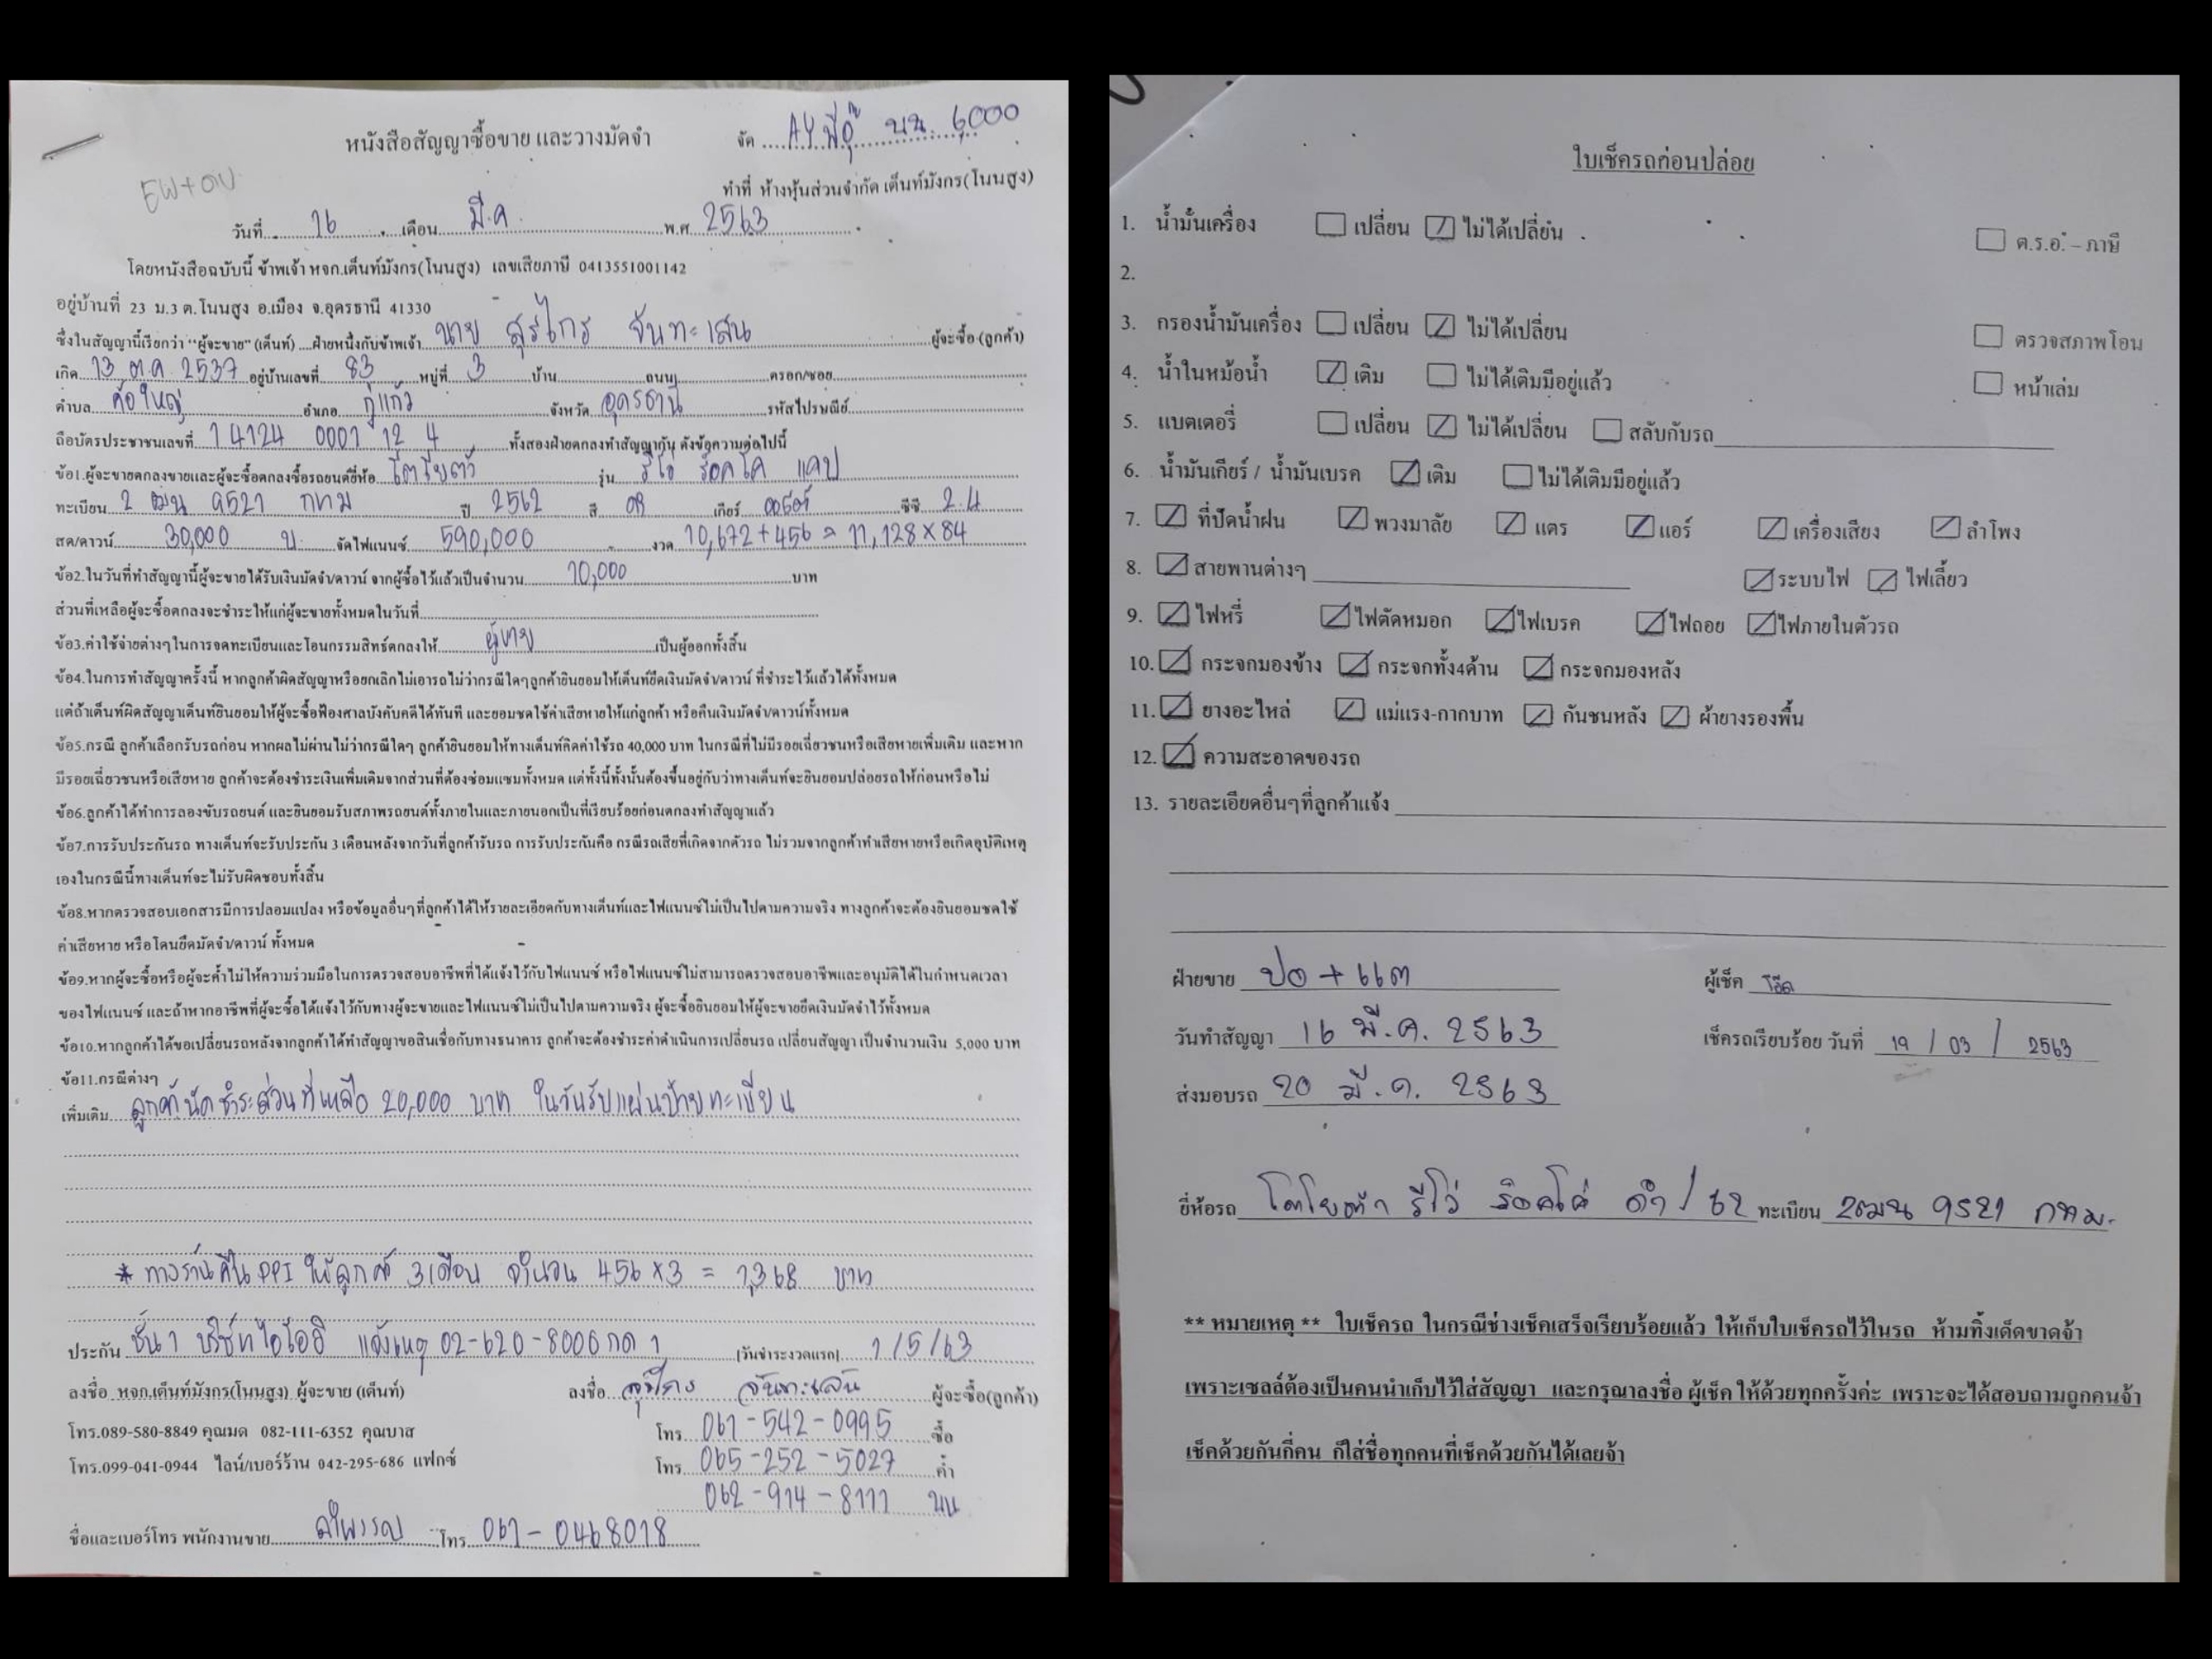 หนังสือสัญญาซื้อขาย และวางมัดจำ
จัด AY พี่อุ๊ นน. 6,000
EW+ดบ
ทำที่ ห้างหุ้นส่วนจำกัด เต็นท์มังกร(โนนสูง)
วันที่ 16 เดือน มี.ค. พ.ศ. 2563
โดยหนังสือฉบับนี้ ข้าพเจ้า หจก.เต็นท์มังกร(โนนสูง) เลขเสียภาษี 0413551001142
อยู่บ้านที่ 23 ม.3 ต.โนนสูง อ.เมือง จ.อุดรธานี 41330
ซึ่งในสัญญานี้เรียกว่า "ผู้จะขาย" (เต็นท์) ....ฝ่ายหนึ่งกับข้าพเจ้า นาย สุรไกร จันทะเสน ผู้จะซื้อ (ลูกค้า)
เกิด 13 ต.ค. 2537 อยู่บ้านเลขที่ 83 หมู่ที่ 3 บ้าน ถนน ตรอก/ซอย
ตำบล ค้อใหญ่ อำเภอ กู่แก้ว จังหวัด อุดรธานี รหัสไปรษณีย์
ถือบัตรประชาชนเลขที่ 1 4124 0001 12 4 ทั้งสองฝ่ายตกลงทำสัญญากัน ดังข้อความต่อไปนี้
ข้อ1.ผู้จะขายตกลงขายและผู้จะซื้อตกลงซื้อรถยนต์ยี่ห้อ โตโยต้า รุ่น รีโว่ ร็อคโค แคป
ทะเบียน 2 ฒน 9521 กทม ปี 2562 สี ดำ เกียร์ ออโต้ ซีซี 2.4
สด/ดาวน์ 30,000 บ. จัดไฟแนนซ์ 590,000 งวด 10,672+456 = 11,128 x 84
ข้อ2.ในวันที่ทำสัญญานี้ผู้จะขายได้รับเงินมัดจำ/ดาวน์ จากผู้ซื้อไว้แล้วเป็นจำนวน 10,000 บาท
ส่วนที่เหลือผู้จะซื้อตกลงจะชำระให้แก่ผู้จะขายทั้งหมดในวันที่
ข้อ3.ค่าใช้จ่ายต่างๆในการจดทะเบียนและโอนกรรมสิทธ์ตกลงให้ ผู้ขาย เป็นผู้ออกทั้งสิ้น
ข้อ4.ในการทำสัญญาครั้งนี้ หากลูกค้าผิดสัญญาหรือยกเลิกไม่เอารถไม่ว่ากรณีใดๆลูกค้ายินยอมให้เต็นท์ยึดเงินมัดจำ/ดาวน์ ที่ชำระไว้แล้วได้ทั้งหมด
แต่ถ้าเต็นท์ผิดสัญญาเต็นท์ยินยอมให้ผู้จะซื้อฟ้องศาลบังคับคดีได้ทันที และยอมชดใช้ค่าเสียหายให้แก่ลูกค้า หรือคืนเงินมัดจำ/ดาวน์ทั้งหมด
ข้อ5.กรณี ลูกค้าเลือกรับรถก่อน หากผลไม่ผ่านไม่ว่ากรณีใดๆ ลูกค้ายินยอมให้ทางเต็นท์คิดค่าใช้รถ 40,000 บาท ในกรณีที่ไม่มีรอยเฉี่ยวชนหรือเสียหายเพิ่มเติม และหาก
มีรอยเฉี่ยวชนหรือเสียหาย ลูกค้าจะต้องชำระเงินเพิ่มเติมจากส่วนที่ต้องซ่อมแซมทั้งหมด แต่ทั้งนี้ทั้งนั้นต้องขึ้นอยู่กับว่าทางเต็นท์จะยินยอมปล่อยรถให้ก่อนหรือไม่
ข้อ6.ลูกค้าได้ทำการลองขับรถยนต์ และยินยอมรับสภาพรถยนต์ทั้งภายในและภายนอกเป็นที่เรียบร้อยก่อนตกลงทำสัญญาแล้ว
ข้อ7.การรับประกันรถ ทางเต็นท์จะรับประกัน 3 เดือนหลังจากวันที่ลูกค้ารับรถ การรับประกันคือ กรณีรถเสียที่เกิดจากตัวรถ ไม่รวมจากลูกค้าทำเสียหายหรือเกิดอุบัติเหตุ
เองในกรณีนี้ทางเต็นท์จะไม่รับผิดชอบทั้งสิ้น
ข้อ8.หากตรวจสอบเอกสารมีการปลอมแปลง หรือข้อมูลอื่นๆที่ลูกค้าได้ให้รายละเอียดกับทางเต็นท์และไฟแนนซ์ไม่เป็นไปตามความจริง ทางลูกค้าจะต้องยินยอมชดใช้
ค่าเสียหาย หรือโดนยึดมัดจำ/ดาวน์ ทั้งหมด
ข้อ9.หากผู้จะซื้อหรือผู้จะค้ำไม่ให้ความร่วมมือในการตรวจสอบอาชีพที่ได้แจ้งไว้กับไฟแนนซ์ หรือไฟแนนซ์ไม่สามารถตรวจสอบอาชีพและอนุมัติได้ในกำหนดเวลา
ของไฟแนนซ์ และถ้าหากอาชีพที่ผู้จะซื้อได้แจ้งไว้กับทางผู้จะขายและไฟแนนซ์ไม่เป็นไปตามความจริง ผู้จะซื้อยินยอมให้ผู้จะขายยึดเงินมัดจำไว้ทั้งหมด
ข้อ10.หากลูกค้าได้ขอเปลี่ยนรถหลังจากลูกค้าได้ทำสัญญาขอสินเชื่อกับทางธนาคาร ลูกค้าจะต้องชำระค่าดำเนินการเปลี่ยนรถ เปลี่ยนสัญญา เป็นจำนวนเงิน 5,000 บาท
ข้อ11.กรณีต่างๆ
เพิ่มเติม ลูกค้านัดชำระส่วนที่เหลือ 20,000 บาท ในวันรับแผ่นป้ายทะเบียน
* ทางร้านคืน PPI ให้ลูกค้า 3 เดือน จำนวน 456 x 3 = 1,368 บาท
ประกัน ชั้น 1 บริษัทไอโออิ แจ้งเหตุ 02-620-8000 กด 1 (วันชำระงวดแรก) 1/5/63
ลงชื่อ หจก.เต็นท์มังกร(โนนสูง) ผู้จะขาย (เต็นท์) ลงชื่อ สุรไกร จันทะเสน ผู้จะซื้อ(ลูกค้า)
โทร.089-580-8849 คุณมด 082-111-6352 คุณบาส โทร. 061-542-0995 ซื้อ
โทร.099-041-0944 ไลน์/เบอร์ร้าน 042-295-686 แฟกซ์ โทร. 065-252-5027 ค้ำ
062-914-8111 นน
ชื่อและเบอร์โทร พนักงานขาย ลำพรรณ โทร. 061-0468018
ใบเช็ครถก่อนปล่อย
1. น้ำมันเครื่อง เปลี่ยน ไม่ได้เปลี่ยน ต.ร.อ. – ภาษี
2.
3. กรองน้ำมันเครื่อง เปลี่ยน ไม่ได้เปลี่ยน ตรวจสภาพโอน
4. น้ำในหม้อน้ำ เติม ไม่ได้เติมมีอยู่แล้ว หน้าเล่ม
5. แบตเตอรี่ เปลี่ยน ไม่ได้เปลี่ยน สลับกับรถ
6. น้ำมันเกียร์ / น้ำมันเบรค เติม ไม่ได้เติมมีอยู่แล้ว
7. ที่ปัดน้ำฝน พวงมาลัย แตร แอร์ เครื่องเสียง ลำโพง
8. สายพานต่างๆ ระบบไฟ ไฟเลี้ยว
9. ไฟหรี่ ไฟตัดหมอก ไฟเบรค ไฟถอย ไฟภายในตัวรถ
10. กระจกมองข้าง กระจกทั้ง4ด้าน กระจกมองหลัง
11. ยางอะไหล่ แม่แรง-กากบาท กันชนหลัง ผ้ายางรองพื้น
12. ความสะอาดของรถ
13. รายละเอียดอื่นๆที่ลูกค้าแจ้ง
ฝ่ายขาย ปอ + แต ผู้เช็ค
วันทำสัญญา 16 มี.ค. 2563 เช็ครถเรียบร้อย วันที่ 19 / 03 / 2563
ส่งมอบรถ 20 มี.ค. 2563
ยี่ห้อรถ โตโยต้า รีโว่ ร็อคโค่ ดำ / 62 ทะเบียน 2ฒน 9521 กทม.
** หมายเหตุ ** ใบเช็ครถ ในกรณีช่างเช็คเสร็จเรียบร้อยแล้ว ให้เก็บใบเช็ครถไว้ในรถ ห้ามทิ้งเด็ดขาดจ้า
เพราะเซลล์ต้องเป็นคนนำเก็บไว้ใส่สัญญา และกรุณาลงชื่อ ผู้เช็ค ให้ด้วยทุกครั้งค่ะ เพราะจะได้สอบถามถูกคนจ้า
เช็คด้วยกันกี่คน ก็ใส่ชื่อทุกคนที่เช็คด้วยกันได้เลยจ้า